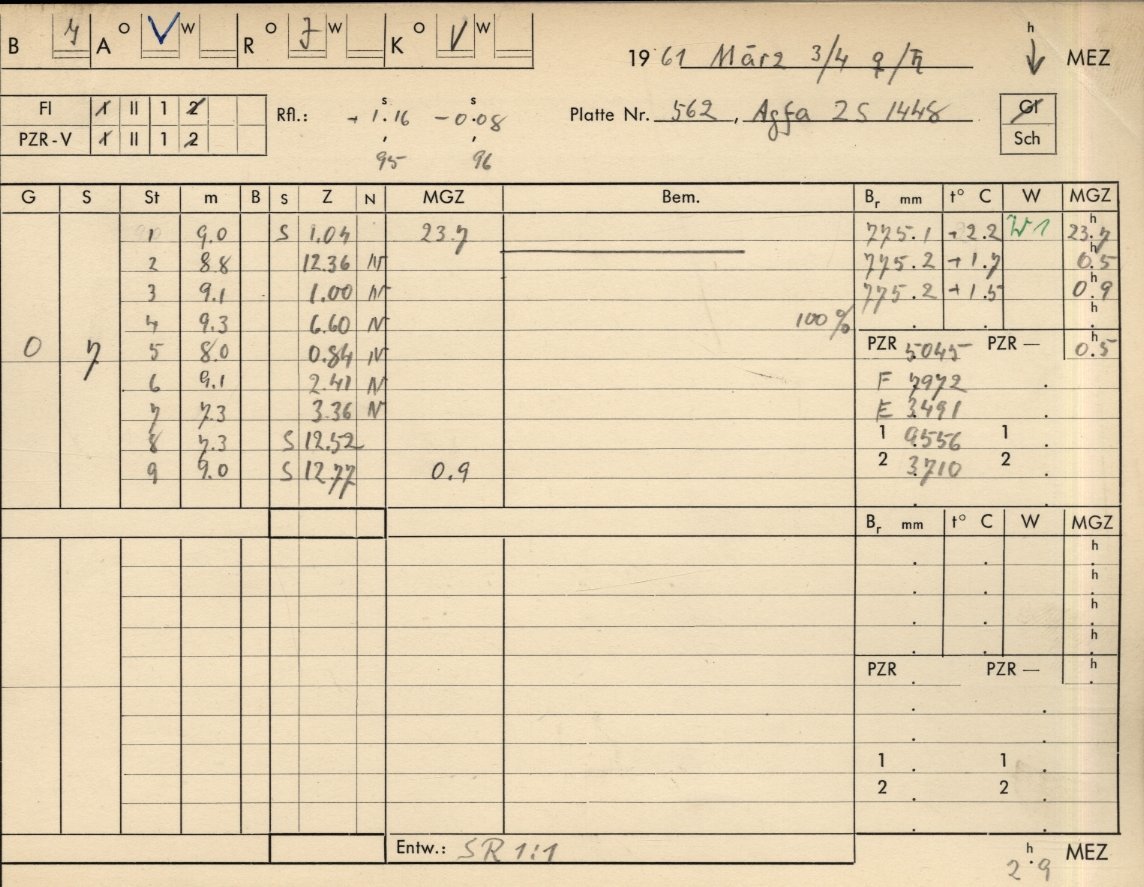 B A o V w R o J w K o V w
1961 März 3/4 ♀/♄ h MEZ
FI I II 1 2 Rfl.: +1.16 s −0.08 s Platte Nr. 562, Agfa 2S 1448 Gl
PZR-V I II 1 2 95 96 Sch
G S St m B S Z N MGZ Bem. Br mm t° C W MGZ
1 9.0 S 1.04 23.7 775.1 +2.2 W1 23.h7
2 8.8 12.36 N 775.2 +1.7 0.h5
3 9.1 1.00 N 775.2 +1.5 0.h9
4 9.3 6.60 N 100% . . h.
0 7 5 8.0 0.84 N PZR 5045 PZR — 0.h5
6 9.1 2.41 N F 7972 .
7 7.3 3.36 N E 3.491
8 7.3 S 12.52 1 9.556 1 .
9 9.0 S 12.77 0.9 2 3.710 2 .
Br mm t° C W MGZ
. . h.
. . h.
. . h.
. . h.
PZR . PZR — h.
. .
. .
1 . 1 .
2 . 2 .
Entw.: SR 1:1
2.h9 MEZ